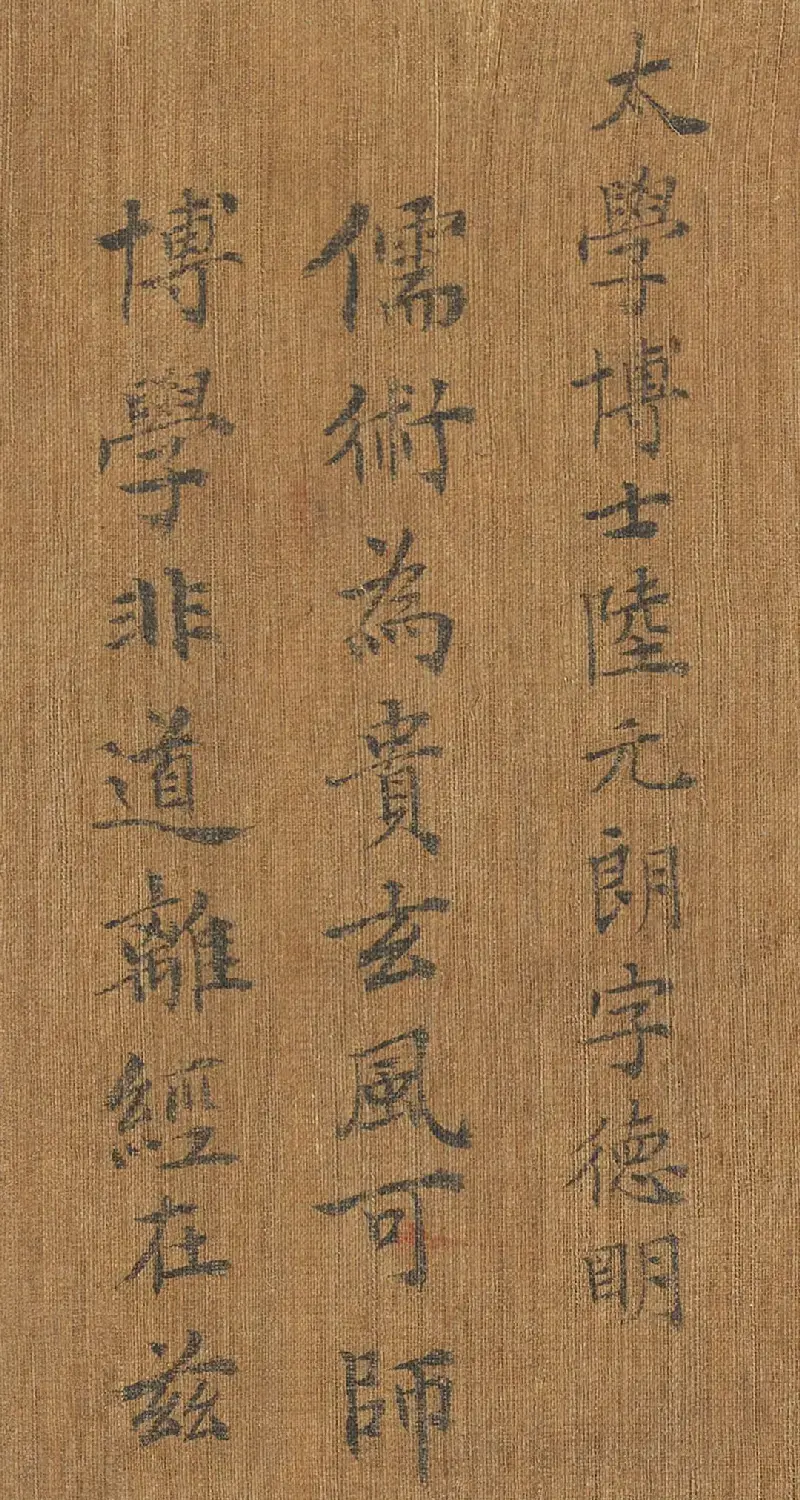 太學博士陸元朗字德明
儒術為貴玄風可師
博學非道離經在茲